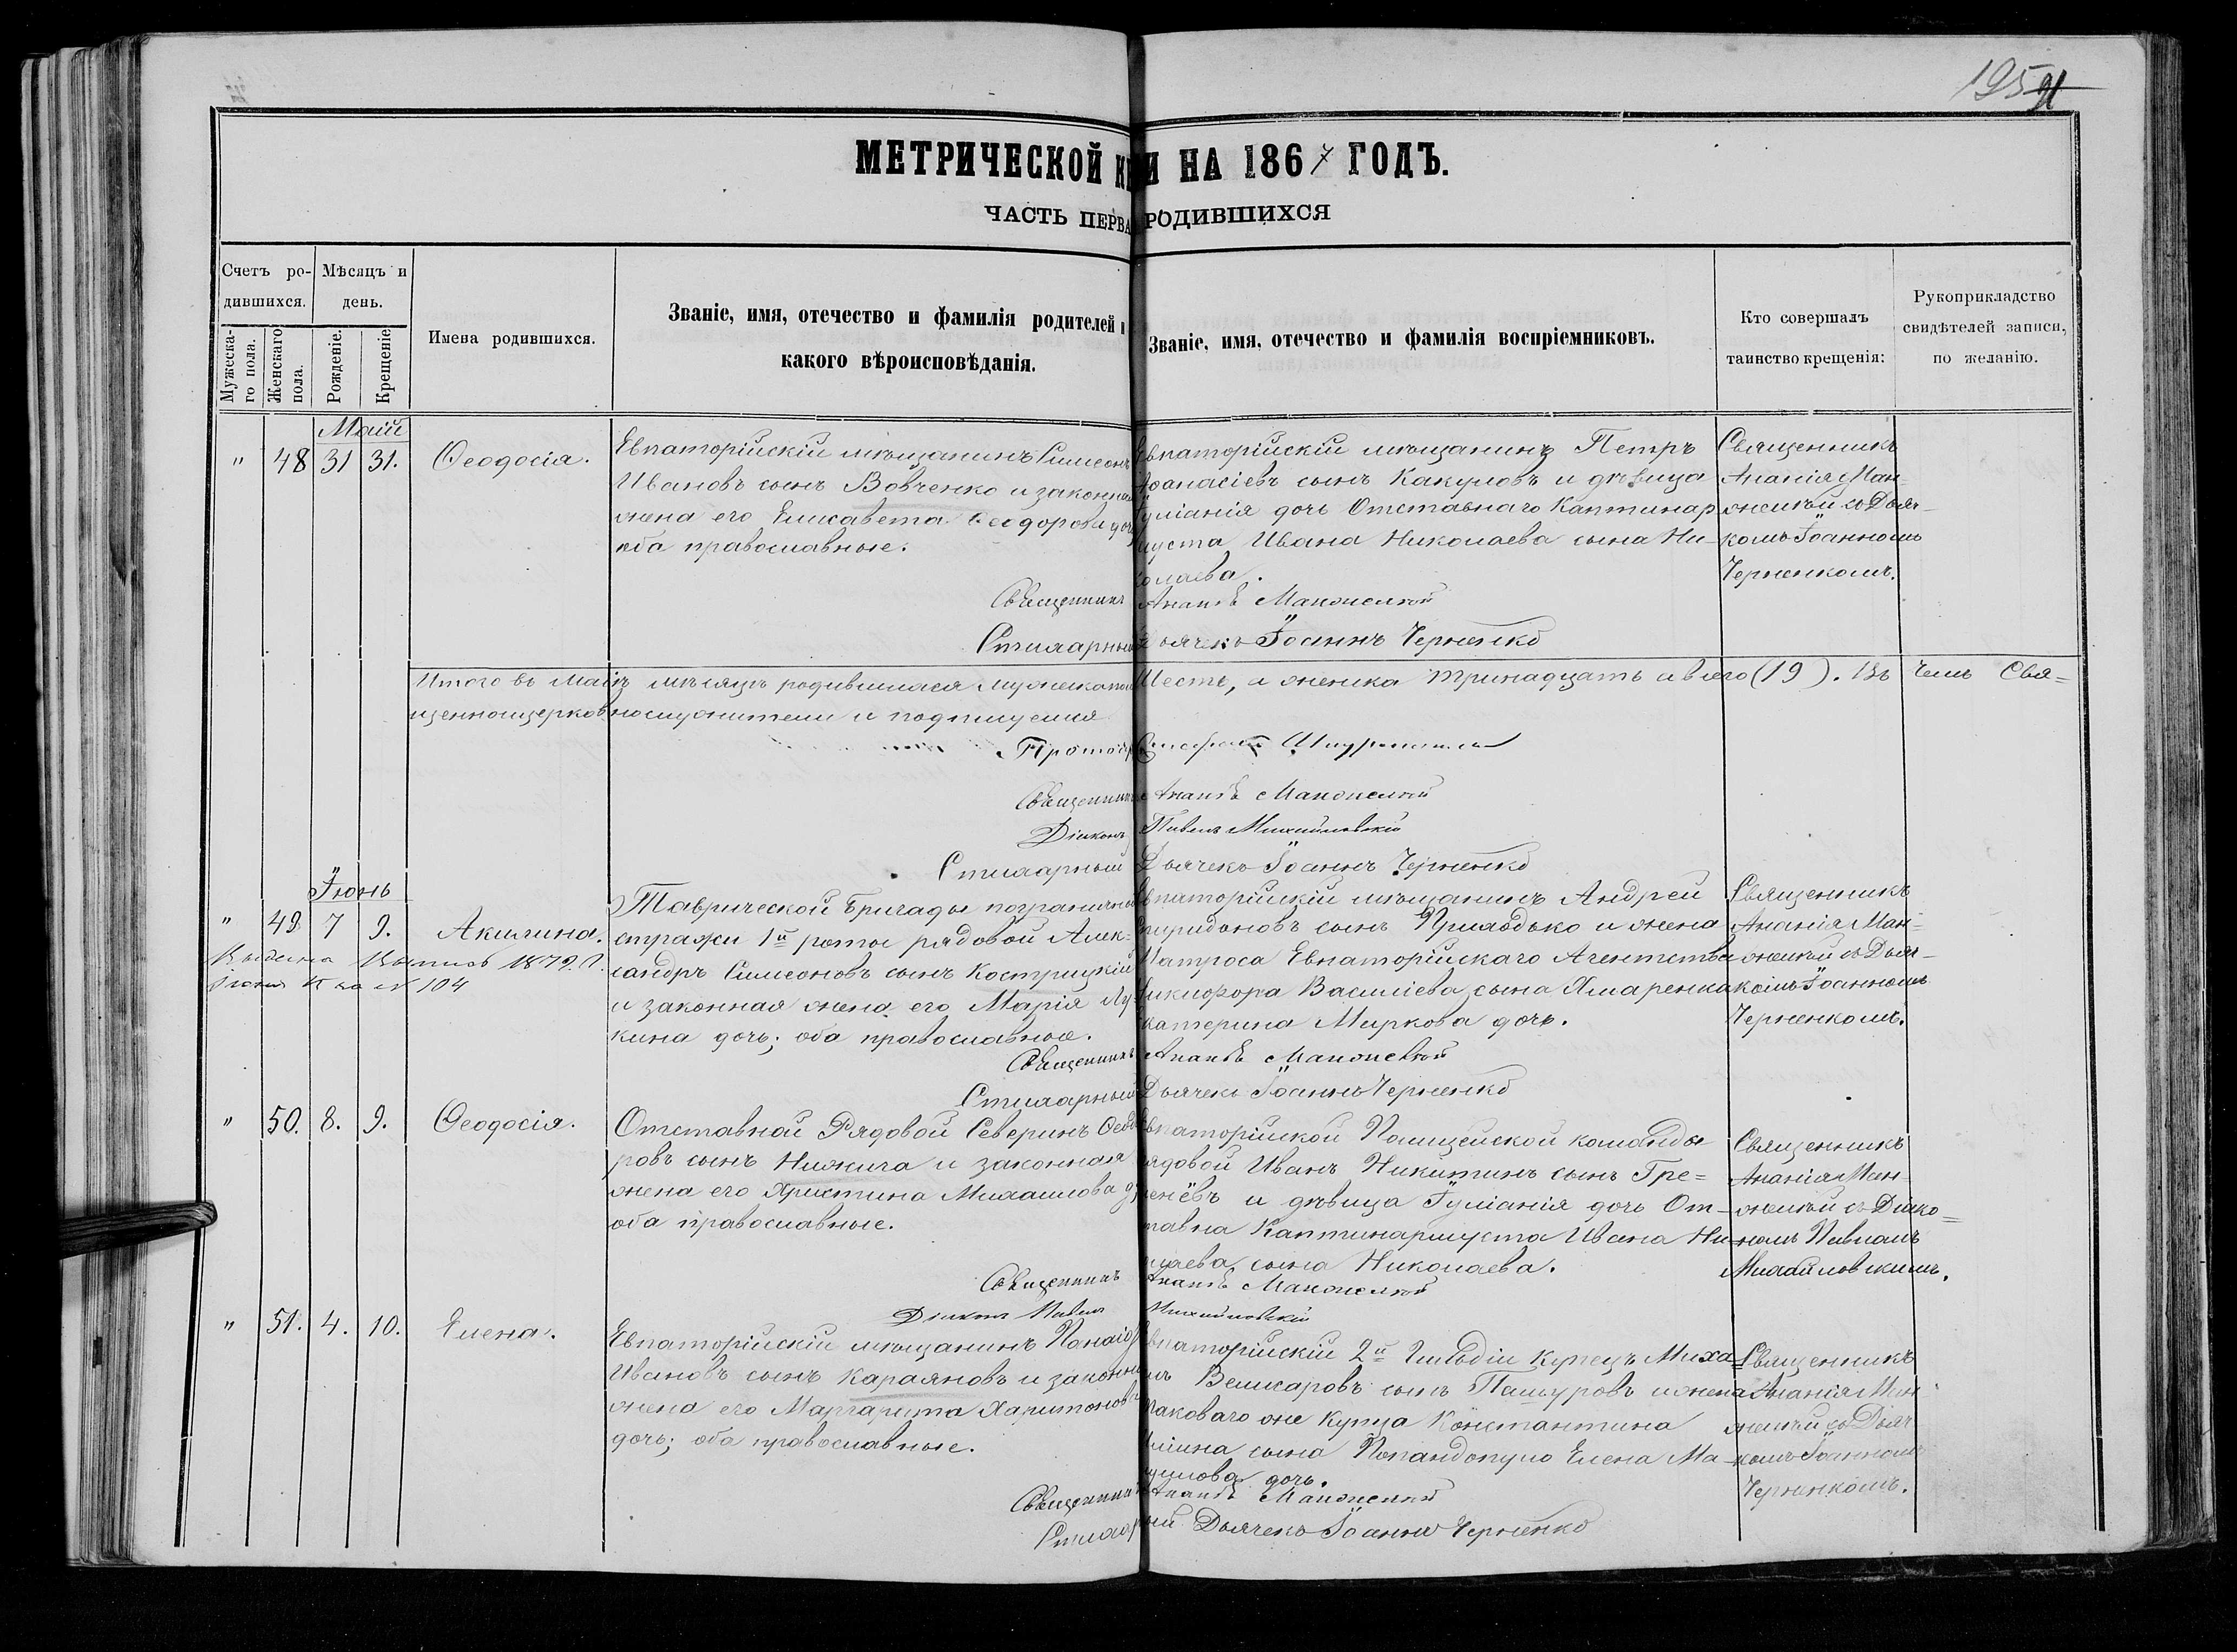 195 91
МЕТРИЧЕСКОЙ КН И НА 1867 ГОДЪ.
ЧАСТЬ ПЕРВА РОДИВШИХСЯ
Счетъ ро-
дившихся.
Мужеска-
го пола.
Женскаго
пола.
Мѣсяцъ и
день.
Рожденіе.
Крещеніе
Имена родившихся.
Званіе, имя, отечество и фамилія родителей и
какого вѣроисповѣданія.
Званіе, имя, отечество и фамилія воспріемниковъ.
Кто совершалъ
таинство крещенія:
Рукоприкладство
свидѣтелей записи,
по желанію.
Маій
" 48 31 31. Ѳеодосія.
Евпаторійскій мѣщанинъ Симеонъ
Ивановъ сынъ Вовченко и законная
жена его Елисавета Ѳеодорова доч
оба православные.
Евпаторійскій мѣщанинъ Петръ
Аѳанасіевъ сынъ Какуловъ и дѣвица
Іуліанія дочь Отставнаго Каптинар
муста Ивана Николаева сына Ни-
колаева.
Священникъ
Ананія Ман-
желѣй съ Дьяч-
комъ Іоанномъ
Черненкомъ.
Священникъ Ананія Манжелѣй
Стихарный Дьячекъ Іоаннъ Черненко
Итого въ Маіѣ мѣсяцѣ родившихся мужеска пол Шесть, а женска тринадцать а всего (19). Въ чемъ Свя=
щенноцерковнослужители и подпишемся
Протоіер
Священникъ Ананія Манжелѣй
Діаконъ Павелъ Михайловскій
Стихарный Дьячекъ Іоаннъ Черненко
Іюнь
" 49 7 9. Акилина.
Выдана Выпись 1879. г.
за № 104
Таврической Бригады погранично
стражи 1й роты рядовой Алек=
сандръ Симеоновъ сынъ Кострицкій
и законная жена его Марія Лу-
кина дочь; оба православные.
Евпаторійскій мѣщанинъ Андрей
Спиридоновъ сынъ Приходько и жена
Матроса Евпаторійскаго Агентства
Никифора Василіева сына Хмаренка
Екатерина Маркова дочь.
Священникъ
Ананія Ман-
желѣй съ Дьяч-
комъ Іоанномъ
Черненкомъ.
Священникъ Ананія Манжелѣй
Стихарный Дьячекъ Іоаннъ Черненко
" 50. 8. 9. Ѳеодосія.
Отставной Рядовой Северинъ Ѳеодо
ровъ сынъ Нижича и законная
жена его Христина Михаилова д
оба православные.
Евпаторійской Полицейской команды
рядовой Иванъ Никитинъ сынъ Гре=
енёвъ и дѣвица Іуліанія дочь От-
тавна Каптинармуста Ивана Ни-
олаева сына Николаева.
Священникъ
Ананія Ман-
желѣй съ Діако=
номъ Павломъ
Михайловскимъ.
Священникъ Ананія Манжелѣй
Діаконъ Павелъ Михайловскій
" 51. 4. 10. Елена.
Евпаторійскій мѣщанинъ Панаіо
Ивановъ сынъ Караяновъ и законн
жена его Маргарита Харитонов
дочь; оба православные.
Евпаторійскій 2й Гильдіи купецъ Миха-
илъ Велисаровъ сынъ Пашуровъ и жена
таковаго же купца Константина
Иліина сына Попандопуло Елена Ма-
дочь.
Священникъ
Ананія Ман
желѣй съ Дьяч
комъ Іоанномъ
Черненкомъ.
Священникъ Ананія Манжелѣй
Стихарный Дьячекъ Іоаннъ Черненко